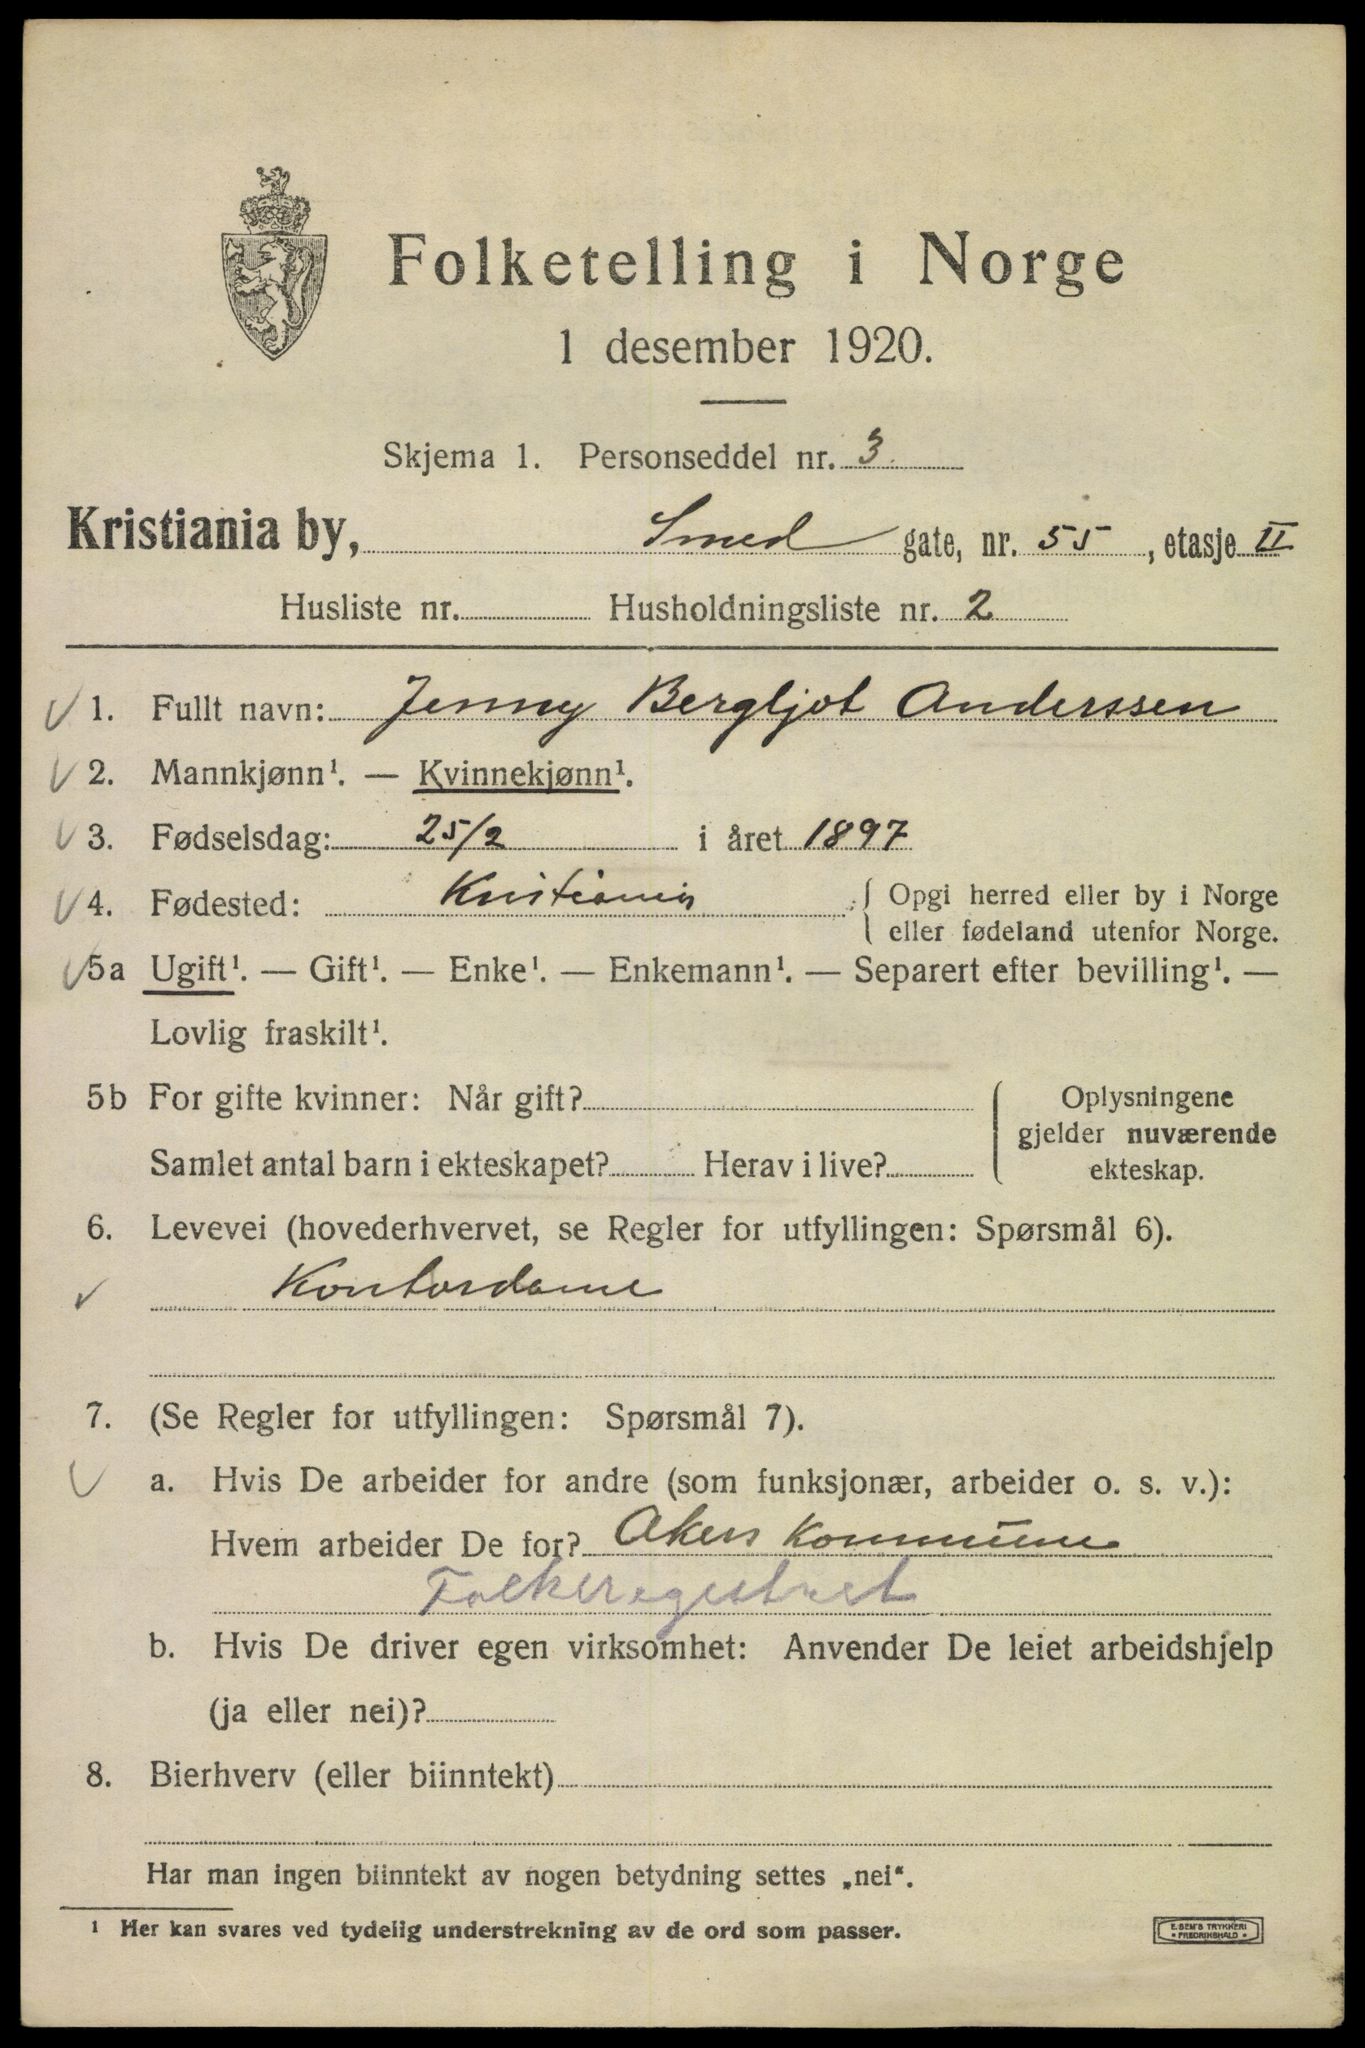 Folketelling i Norge
1 desember 1920.
Skjema 1. Personseddel nr. 3
Kristiania by, Smed gate, nr. 55, etasje II
Husliste nr. Husholdningsliste nr. 2
1. Fullt navn: Jenny Bergljot Anderssen
2. Mannkjønn¹. — Kvinnekjønn¹.
3. Fødselsdag: 25/2 i året 1897
4. Fødested: Kristiania { Opgi herred eller by i Norge
eller fødeland utenfor Norge.
5a Ugift¹. — Gift¹. — Enke¹. — Enkemann¹. — Separert efter bevilling¹. —
Lovlig fraskilt¹.
5b For gifte kvinner: Når gift? Oplysningene
gjelder nuværende
Samlet antal barn i ekteskapet? Herav i live? ekteskap.
6. Levevei (hovederhvervet, se Regler for utfyllingen: Spørsmål 6).
Kontordame
7. (Se Regler for utfyllingen: Spørsmål 7).
a. Hvis De arbeider for andre (som funksjonær, arbeider o. s. v.):
Hvem arbeider De for? Akers Kommune
Folkeregistret
b. Hvis De driver egen virksomhet: Anvender De leiet arbeidshjelp
(ja eller nei)?
8. Bierhverv (eller biinntekt)
Har man ingen biinntekt av nogen betydning settes „nei“.
¹ Her kan svares ved tydelig understrekning av de ord som passer.
E. SEM'S TRYKKERI
• FREDRIKSHALD •